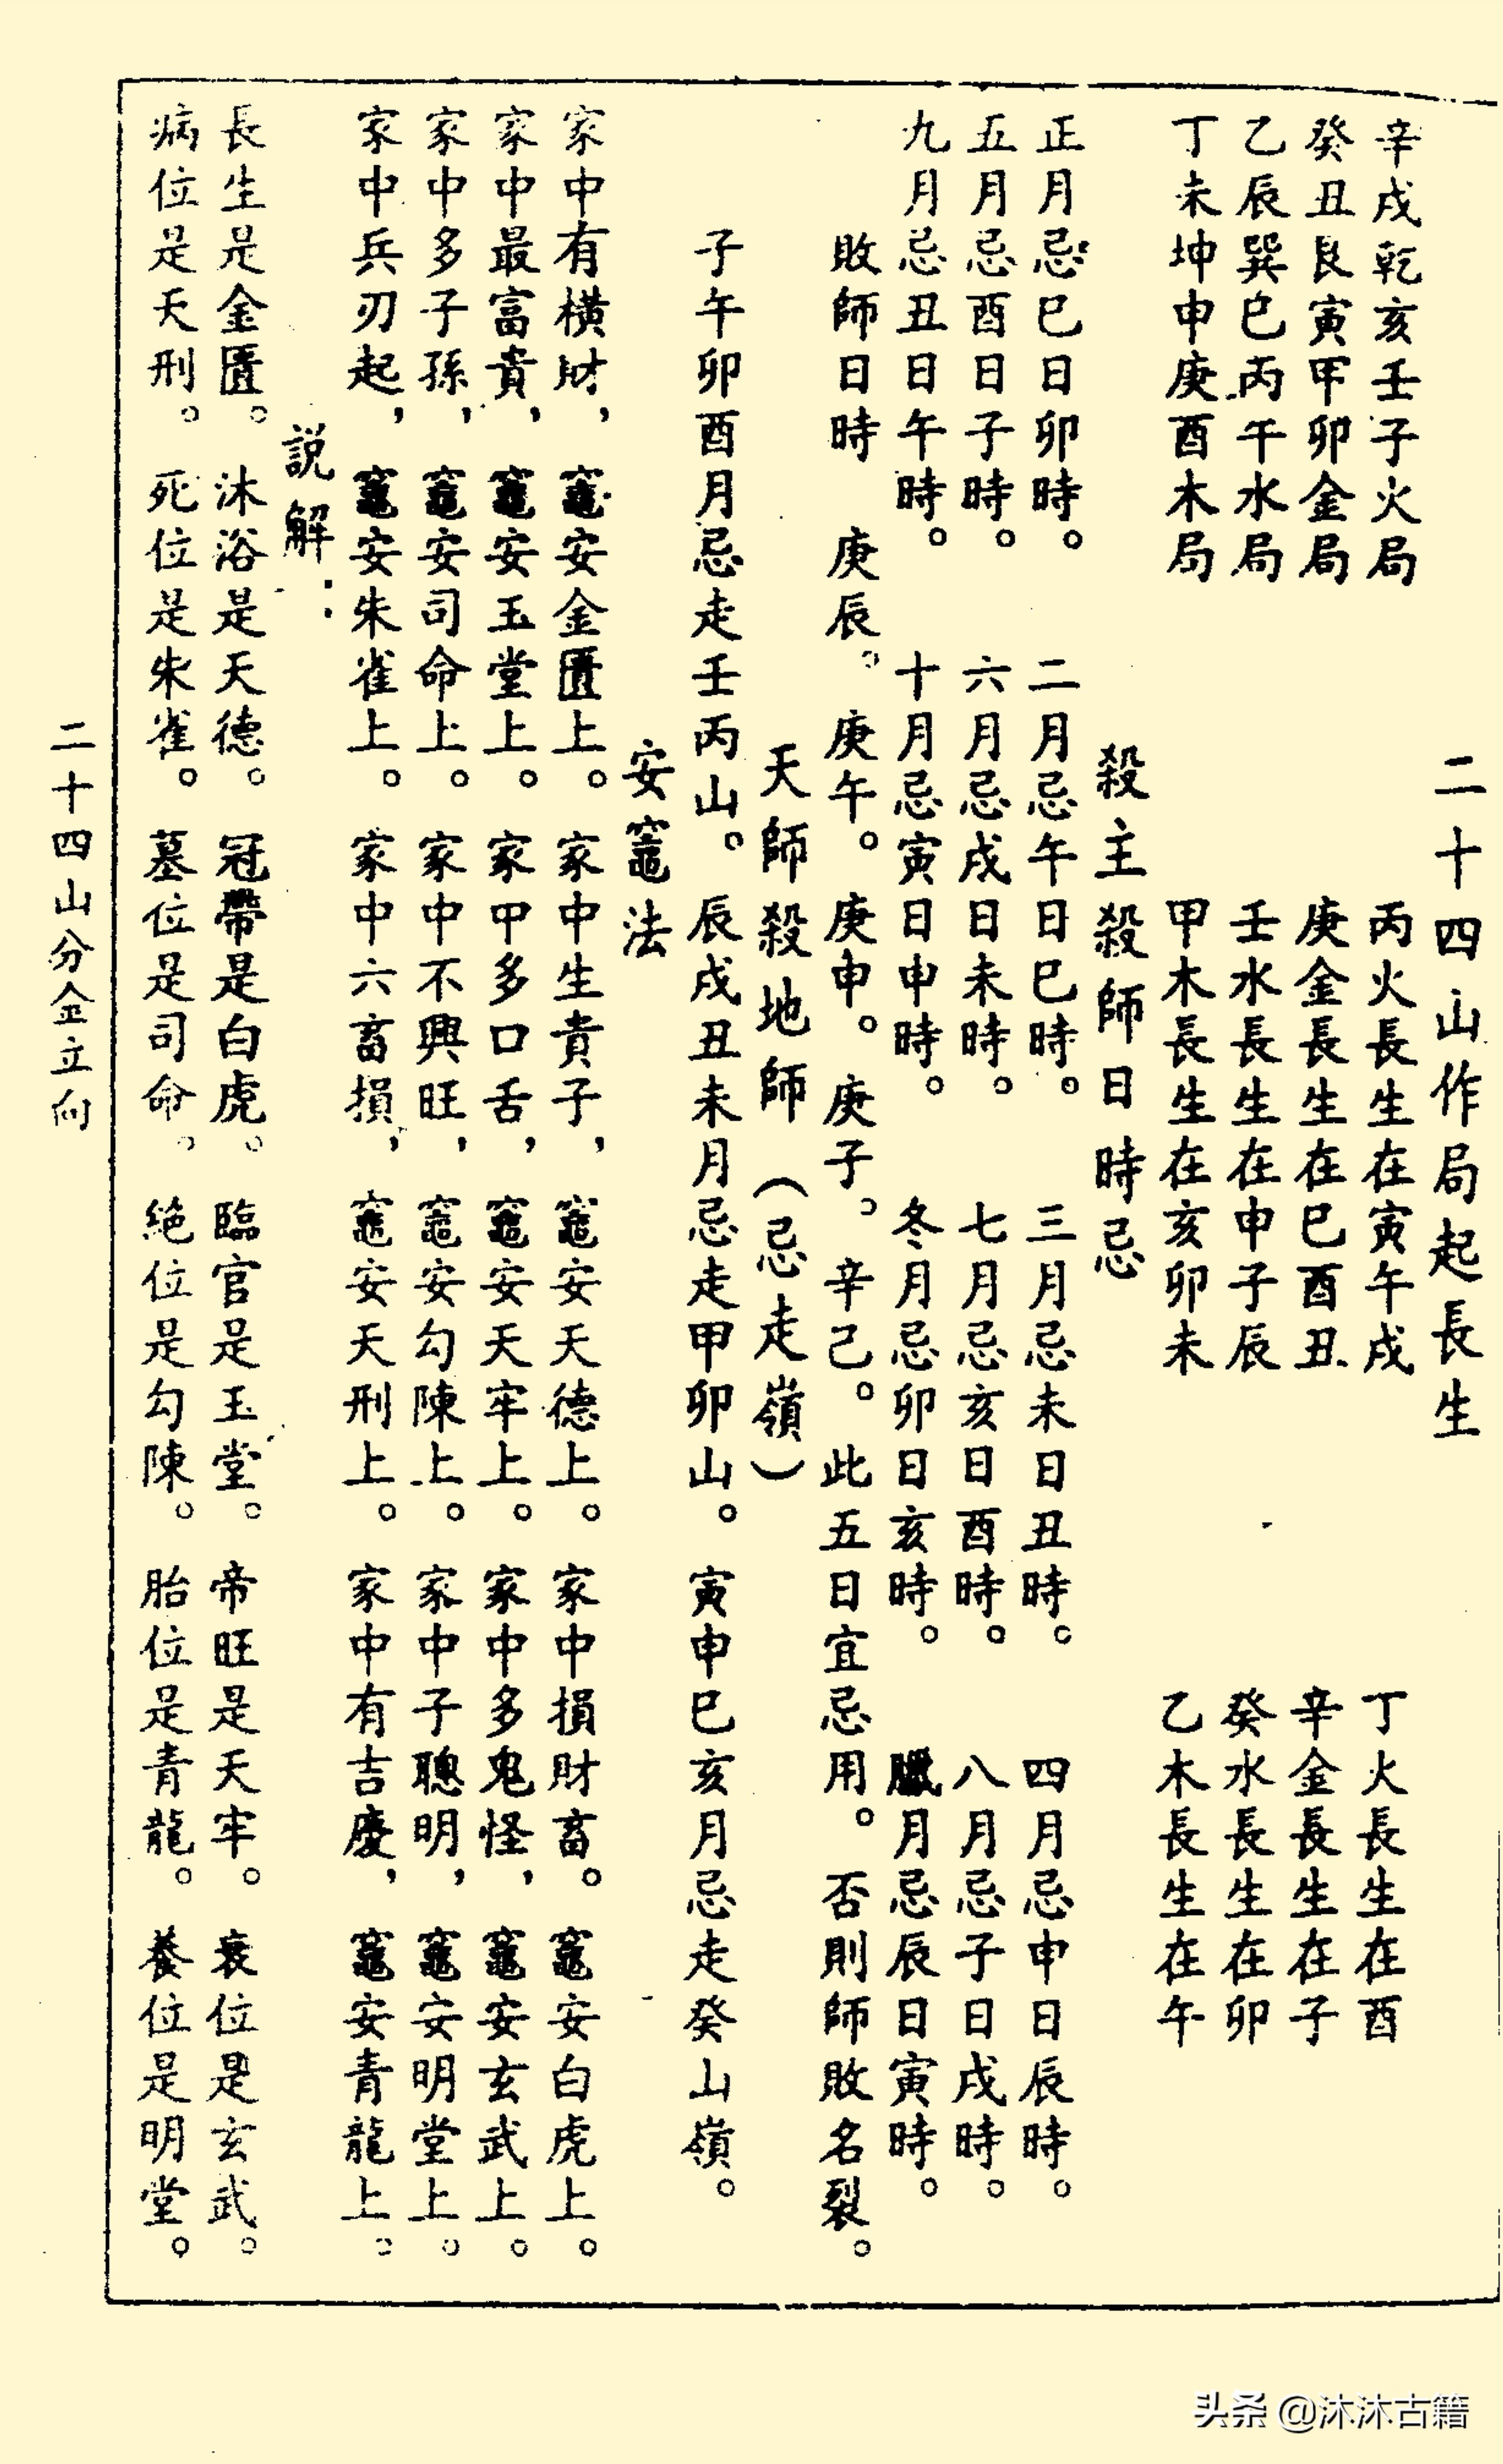 二十四山作局起長生
辛戌乾亥壬子火局　丙火長生在寅午戌　丁火長生在酉
癸丑艮寅甲卯金局　庚金長生在巳酉丑　辛金長生在子
乙辰巽巳丙午水局　壬水長生在申子辰　癸水長生在卯
丁未坤申庚酉木局　甲木長生在亥卯未　乙木長生在午
殺主殺師日時忌
正月忌巳日卯時。　二月忌午日巳時。　三月忌未日丑時。　四月忌申日辰時。
五月忌酉日子時。　六月忌戌日未時。　七月忌亥日酉時。　八月忌子日戌時。
九月忌丑日午時。　十月忌寅日申時。　冬月忌卯日亥時。　臘月忌辰日寅時。
敗師日時　庚辰。庚午。庚申。庚子。辛己。此五日宜忌用。否則師敗名裂。
天師殺地師（忌走嶺）
子午卯酉月忌走壬丙山。辰戌丑未月忌走甲卯山。寅申巳亥月忌走癸山嶺。
安竈法
家中有橫財，竈安金匱上。家中生貴子，竈安天德上。家中損財畜。竈安白虎上。
家中最富貴，竈安玉堂上。家中多口舌，竈安天牢上。家中多鬼怪，竈安玄武上。
家中多子孫，竈安司命上。家中不興旺，竈安勾陳上。家中子聰明，竈安明堂上。
家中兵刃起，竈安朱雀上。家中六畜損，竈安天刑上。家中有吉慶，竈安青龍上。
説解：
長生是金匱。沐浴是天德。冠帶是白虎。臨官是玉堂。帝旺是天牢。衰位是玄武。
病位是天刑。死位是朱雀。墓位是司命。絕位是勾陳。胎位是青龍。養位是明堂。
二十四山分金立向
头条 @沐沐古籍